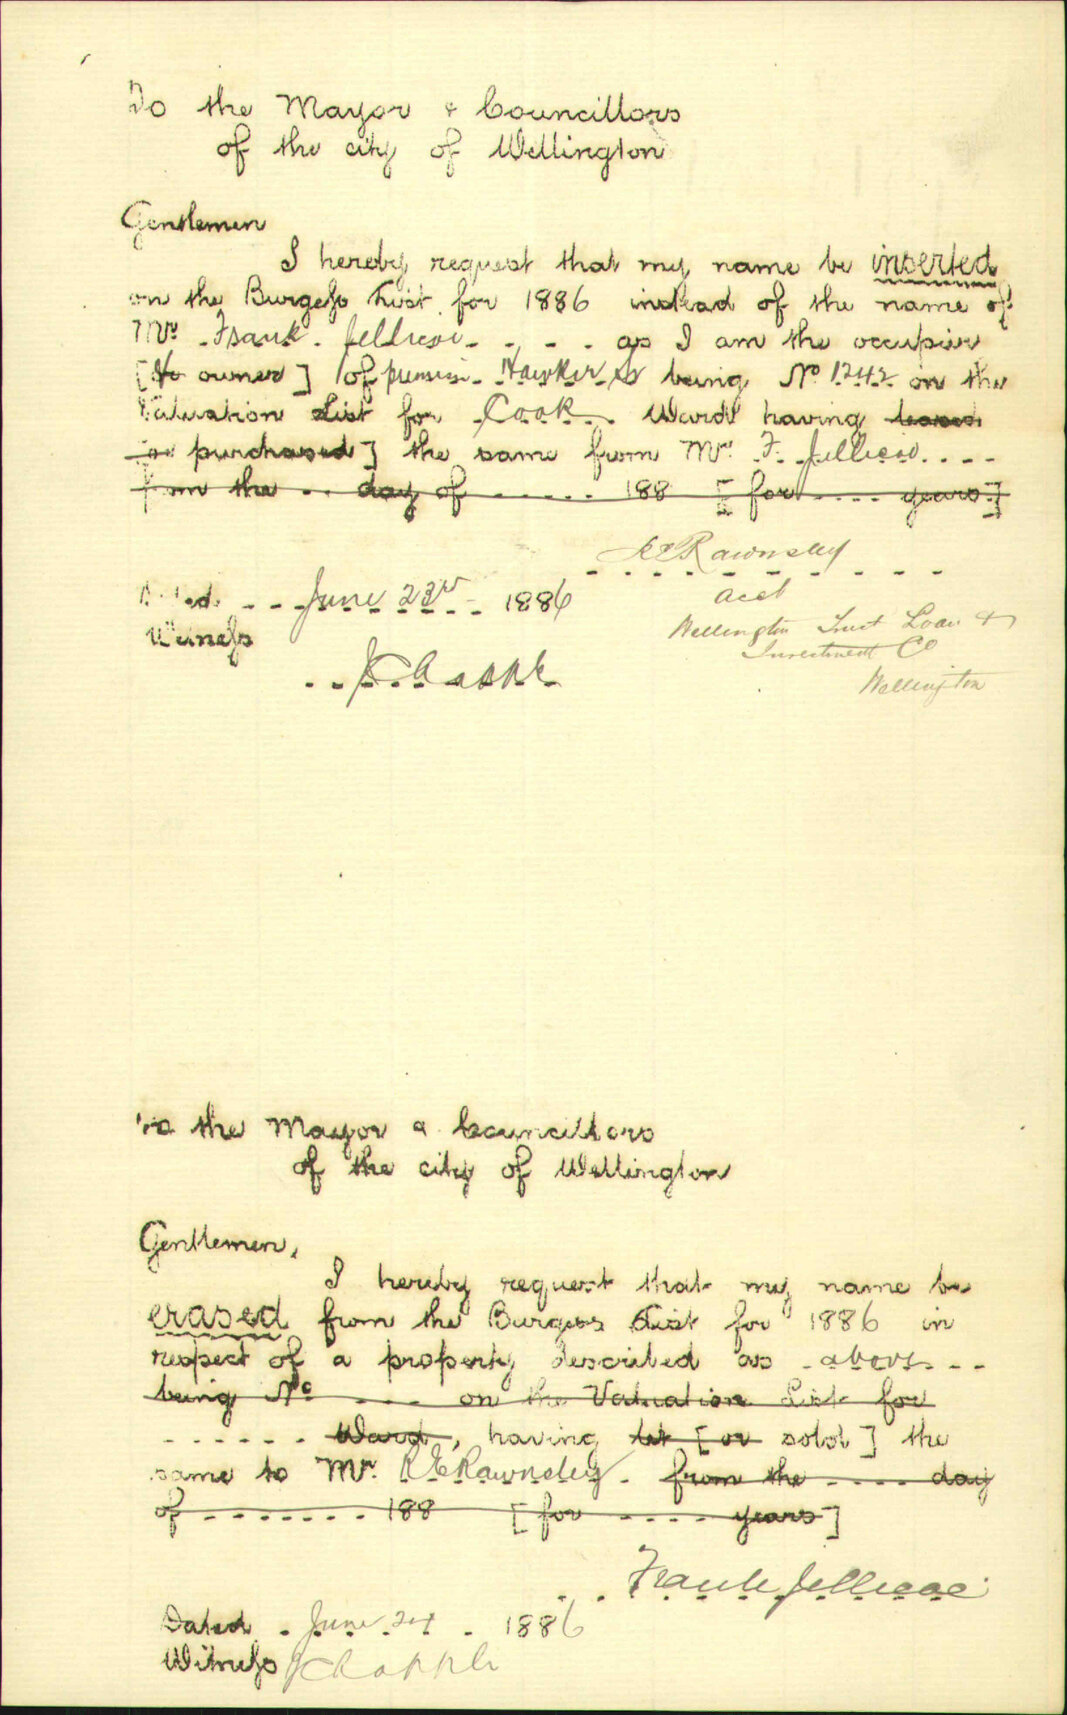 To the Mayor & Councillors
of the city of Wellington
Gentlemen
I hereby request that my name be inserted
on the Burgess List for 1886 instead of the name of
Mr. Frank Jellicoe as I am the occupier
[or owner] of premises Hawker St being No 1242 on the
Valuation List for Cook Ward having leased
or purchased] the same from Mr. F. Jellicoe
from the day of 188 [for years]
R E Rawnsley
Dated June 23rd 1886
acct
Wellington Trust Loan &
Witness
Investment Co
J Chapple
Wellington
To the Mayor & Councillors
of the city of Wellington
Gentlemen,
I hereby request that my name be
erased from the Burgess List for 1886 in
respect of a property described as above
being No on the Valuation List for
Ward, having let [or sold] the
same to Mr. R E Rawnsley from the day
of 188 [for years]
Frank Jellicoe
Dated June 24 1886
Witness J Chapple